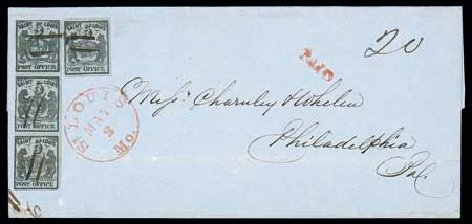 SAINT LOUIS
POST OFFICE
SAINT LOUIS
POST OFFICE
SAINT LOUIS
POST OFFICE
SAINT LOUIS
POST OFFICE
PAID
20
ST LOUIS MO.
MAY
2
Messrs Charnley & Whelen
Philadelphia
Pa.